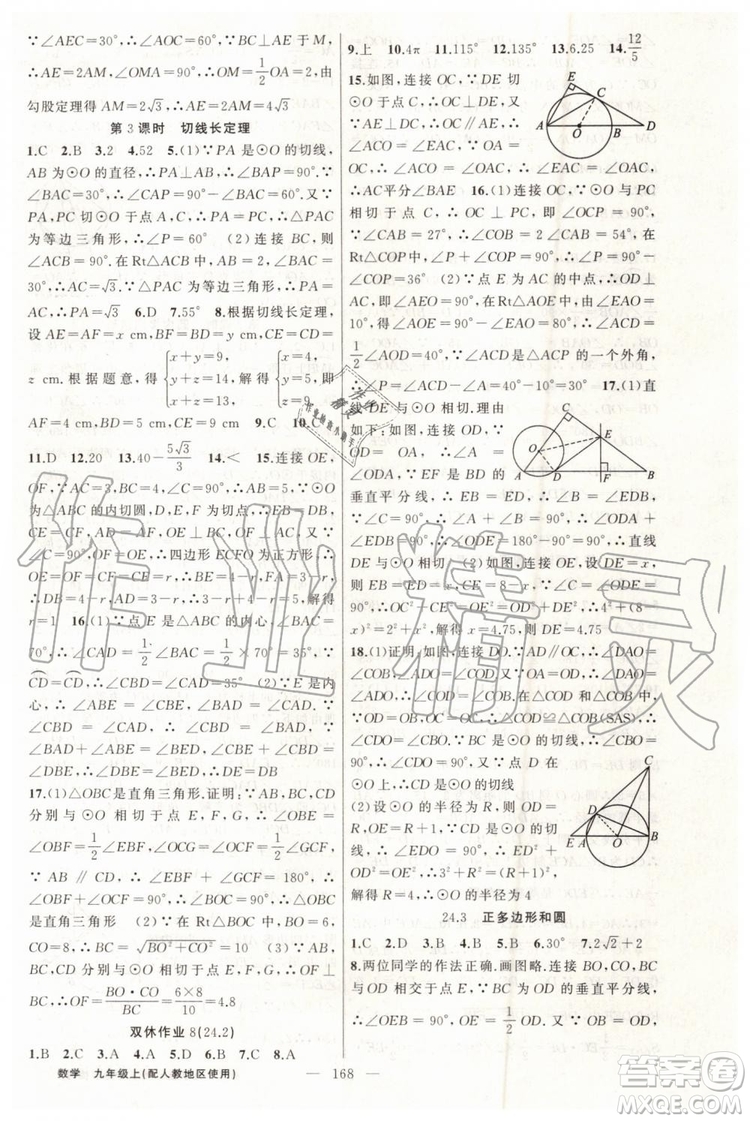 ∵∠AEC=30°,∴∠AOC=60°,∵BC⊥AE于M,
∴AE=2AM,∠OMA=90°,∴OM=1/2OA=2,由
勾股定理得AM=2√3,∴AE=2AM=4√3
第3课时 切线长定理
1.C 2.B 3.2 4.52 5.(1)∵PA是⊙O的切线,
AB为⊙O的直径,∴PA⊥AB,∴∠BAP=90°,∵
∠BAC=30°,∴∠CAP=90°-∠BAC=60°.又∵
PA,PC切⊙O于点A,C,∴PA=PC,∴△PAC
为等边三角形,∴∠P=60° (2)连接BC,则
∠ACB=90°.在Rt△ACB中,AB=2,∠BAC=
30°,∴BC=1,AC=√3.∵△PAC为等边三角形,
∴PA=AC,∴PA=√3 6.D 7.55° 8.根据切线长定理,
设AE=AF=x cm,BF=BD=y cm,CE=CD=
z cm.根据题意,得{x+y=9,y+z=14,x+z=13,
∴AF=4 cm,BD=5 cm,CE=9 cm 9.C 10.C
11.D 12.20 13.40-5√3/3 14.< 15.连接OE,
OF,∵AC=3,BC=4,∠C=90°,∴AB=5,∵⊙O
为△ABC的内切圆,D,E,F为切点,∴AD=AF,
BD=BE,OF⊥AC,OE⊥BC,CF=CE.又∵
∠C=90°,OF=OE,∴四边形ECFO为正方形,∴
CE=OF=OE=CF,∴BE=BD=4-r,AF=
AD=3-r,∵BD+AD=5,∴3-r+4-r=5,解得
r=1 16.(1)∵∠CBD=∠CAD,∠BAC=
70°,∴∠CAD=1/2∠BAC=1/2×70°=35°,∵
CD=CD,∴∠CBD=∠CAD=35° (2)∵E是内
心,∴∠ABE=∠CBE,∠BAD=∠CAD,∵
∠CBD=∠CAD,∴∠CBD=∠BAD,∵
∠BAD+∠ABE=∠BED,∠CBE+∠CBD=
∠DBE,∴∠DBE=∠BED,∴DE=DB
17.(1)△OBC是直角三角形.证明:∵AB,BC,CD
分别与⊙O相切于点E,F,G,∴∠OBE=
∠OBF=1/2∠EBF,∠OCF=∠OCG=1/2∠GCF,
∵AB∥CD,∴∠EBF+∠GCF=180°,∴
∠OBF+∠OCF=90°,∴∠BOC=90°,∴△OBC
是直角三角形 (2)∵在Rt△BOC中,BO=6,
CO=8,∴BC=√(BO²+CO²)=10,∵AB,BC,CD
分别与⊙O相切于点E,F,G,∴OF⊥BC,∴
OF=BO·CO/BC=6×8/10=4.8
双休作业8(24.2)
1.B 2.C 3.A 4.D 5.D 6.A 7.C 8.A
9.上 10.4π 11.115° 12.135° 13.6.25 14.12/5
15.如图,连接OC,∵DE切
⊙O于点C,∴OC⊥DE,又
∵AE⊥DE,∴OC∥AE,∴
∠CAE=∠OCA.又∵OC=
OA,∴∠OCA=∠OAC,∴∠CAE=∠OAC,
∴AC平分∠BAE 16.(1)连接OC,∵⊙O与PC
相切于点C,∴OC⊥PC,即∠OCP=90°,∵
∠CAB=27°,∴∠COB=2∠CAB=54°.在
Rt△COP中,∠P+∠COP=90°,∴∠P=90°-
∠COP=36° (2)∵E为AC的中点,∴OD⊥
AC,即∠AEO=90°,在Rt△AOE中,由∠EAO=
10°,得∠AOE=90°-∠EAO=80°,∴∠ACD=
1/2∠AOD=40°,∵∠ACD是△ACP的一个外角,
∴∠P=∠ACD-∠A=40°-10°=30° 17.(1)直
线DE与⊙O相切.理由
如下:如图,连接OD,∵
OD=OA,∴∠A=
∠ODA,∵EF是BD的
垂直平分线,∴EB=ED,∴∠B=∠EDB,∵
∠C=90°,∴∠A+∠B=90°,∴∠ODA+
∠EDB=90°,∴∠ODE=180°-90°=90°,∴直线
DE与⊙O相切 (2)如图,连接OE,设DE=x,
则EB=ED=x,CE=8-x,∵∠C=∠ODE=
90°,∴OC²+CE²=OE²=OD²+DE²,∴4²+(8-
x)²=2²+x²,解得x=4.75,∴DE=4.75
18.(1)证明:如图,连接DO.∵AD∥OC,∴∠DAO=
∠COB,∠ADO=∠COD.又∵OA=OD,∴
∠DAO=∠ADO,∴∠COD=∠COB,又∵
OC=OC,OD=OB,∴△COD≌△COB(SAS),∴
∠CDO=∠CBO.∵BC是⊙O的切线,∴∠CBO=
90°,∴∠CDO=90°,又∵点D
在⊙O上,∴CD是⊙O的切线
(2)设⊙O的半径为R,则OD=
R,OE=R+1,∵CD是⊙O的
切线,∴∠EDO=90°,∴ED²+
OD²=OE²,∴3²+R²=(R+1)²,
解得R=4,∴⊙O的半径为4
24.3 正多边形和圆
1.C 2.D 3.B 4.B 5.B 6.30° 7.2√2+2
8.两位同学的作法正确.画图略.连接BO,CO,∵BC
与OD垂直平分,∴BO=BD,CO=CD,∴OE=
1/2OD,∴∠OEB=90°,∵OE=1/2OD=1/2OB,
数学 九年级上(配人教地区使用)
168
作业精灵
答案圈